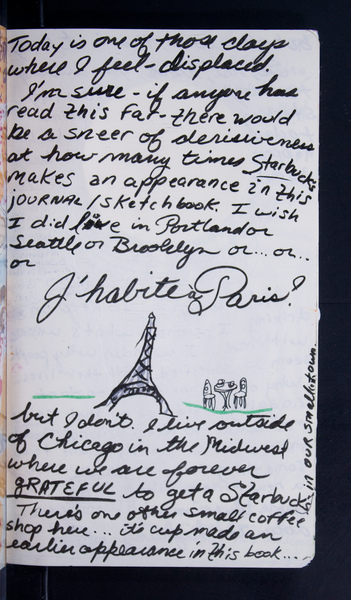 Today is one of those days
where I feel - displaced.
I'm sure - if anyone has
read this far - there would
be a sneer of derisiveness
at how many times Starbuck's
makes an appearance in this
JOURNAL/SKetchbook. I wish
I did live in Portland or
Seattle or Brooklyn or... or...
or
J'habite à Paris?
but I don't. I live outside
of Chicago in the Midwest
where we are forever
GRATEFUL to get a Starbucks
in our small town.
There's one other small coffee
shop here... it's cup made an
earlier appearance in this book...